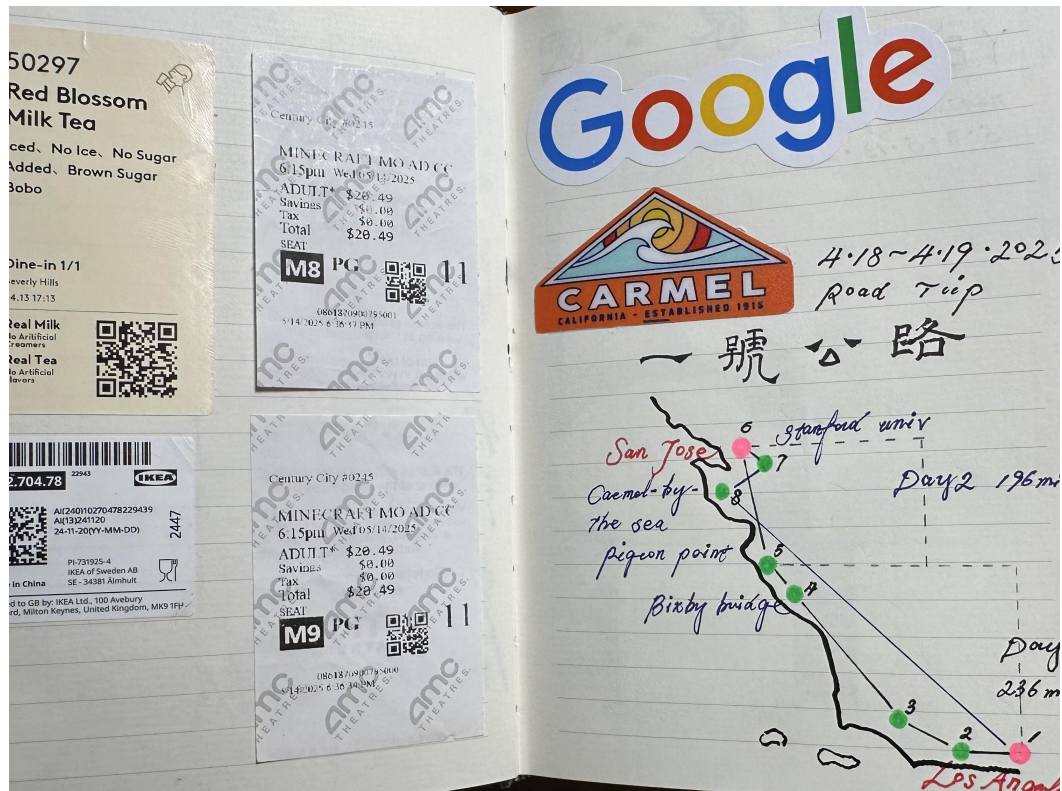 50297
Red Blossom
Milk Tea
ced、No Ice、No Sugar
Added、Brown Sugar
Bobo
Dine-in 1/1
Beverly Hills
4.13 17:13
Real Milk
No Aritificial
Creamers
Real Tea
No Aritificial
Flavors
2.704.78
22943
IKEA
AI(240)10270478229439
AI(13)241120
24-11-20(YY-MM-DD)
2447
PI-731925-4
IKEA of Sweden AB
SE - 34381 Älmhult
in China
ed to GB by: IKEA Ltd., 100 Avebury
rd, Milton Keynes, United Kingdom, MK9 1FH
amc
THEATRES.
Century City #0245
MINECRAFT MO AD CC
6:15pm Wed 05/14/2025
ADULT* $20.49
Savings $0.00
Tax $0.00
Total $20.49
SEAT
M8 PG 11
5/14/2025 6:36:37 PM
Century City #0245
MINECRAFT MO AD CC
6:15pm Wed 05/14/2025
ADULT* $20.49
Savings $0.00
Tax $0.00
Total $20.49
SEAT
M9 PG 11
5/14/2025 6:36:34 PM
Google
CARMEL
CALIFORNIA - ESTABLISHED 1916
4.18~4.19.202
Road Trip
一號公路
6
Stanford univ
San Jose
7
Day 2 196 mi
Carmel-by-
8
the sea
pigeon point
5
4
Bixby bridge
Day
236 m
3
2
1
Los Angel